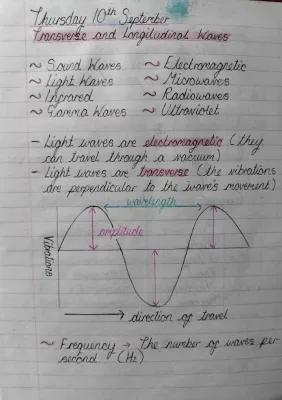 Thursday 10th September
Transverse and Longitudinal Waves
~ Sound Waves ~ Electromagnetic
~ Light Waves ~ Microwaves
~ Infrared ~ Radiowaves
~ Gamma Waves ~ Ultraviolet
- Light waves are electromagnetic (they
can travel through a vacuum)
- Light waves are transverse (the vibrations
are perpendicular to the wave's movement)
wavelength
amplitude
Vibrations
direction of travel
~ Frequency → The number of waves per
second (Hz)